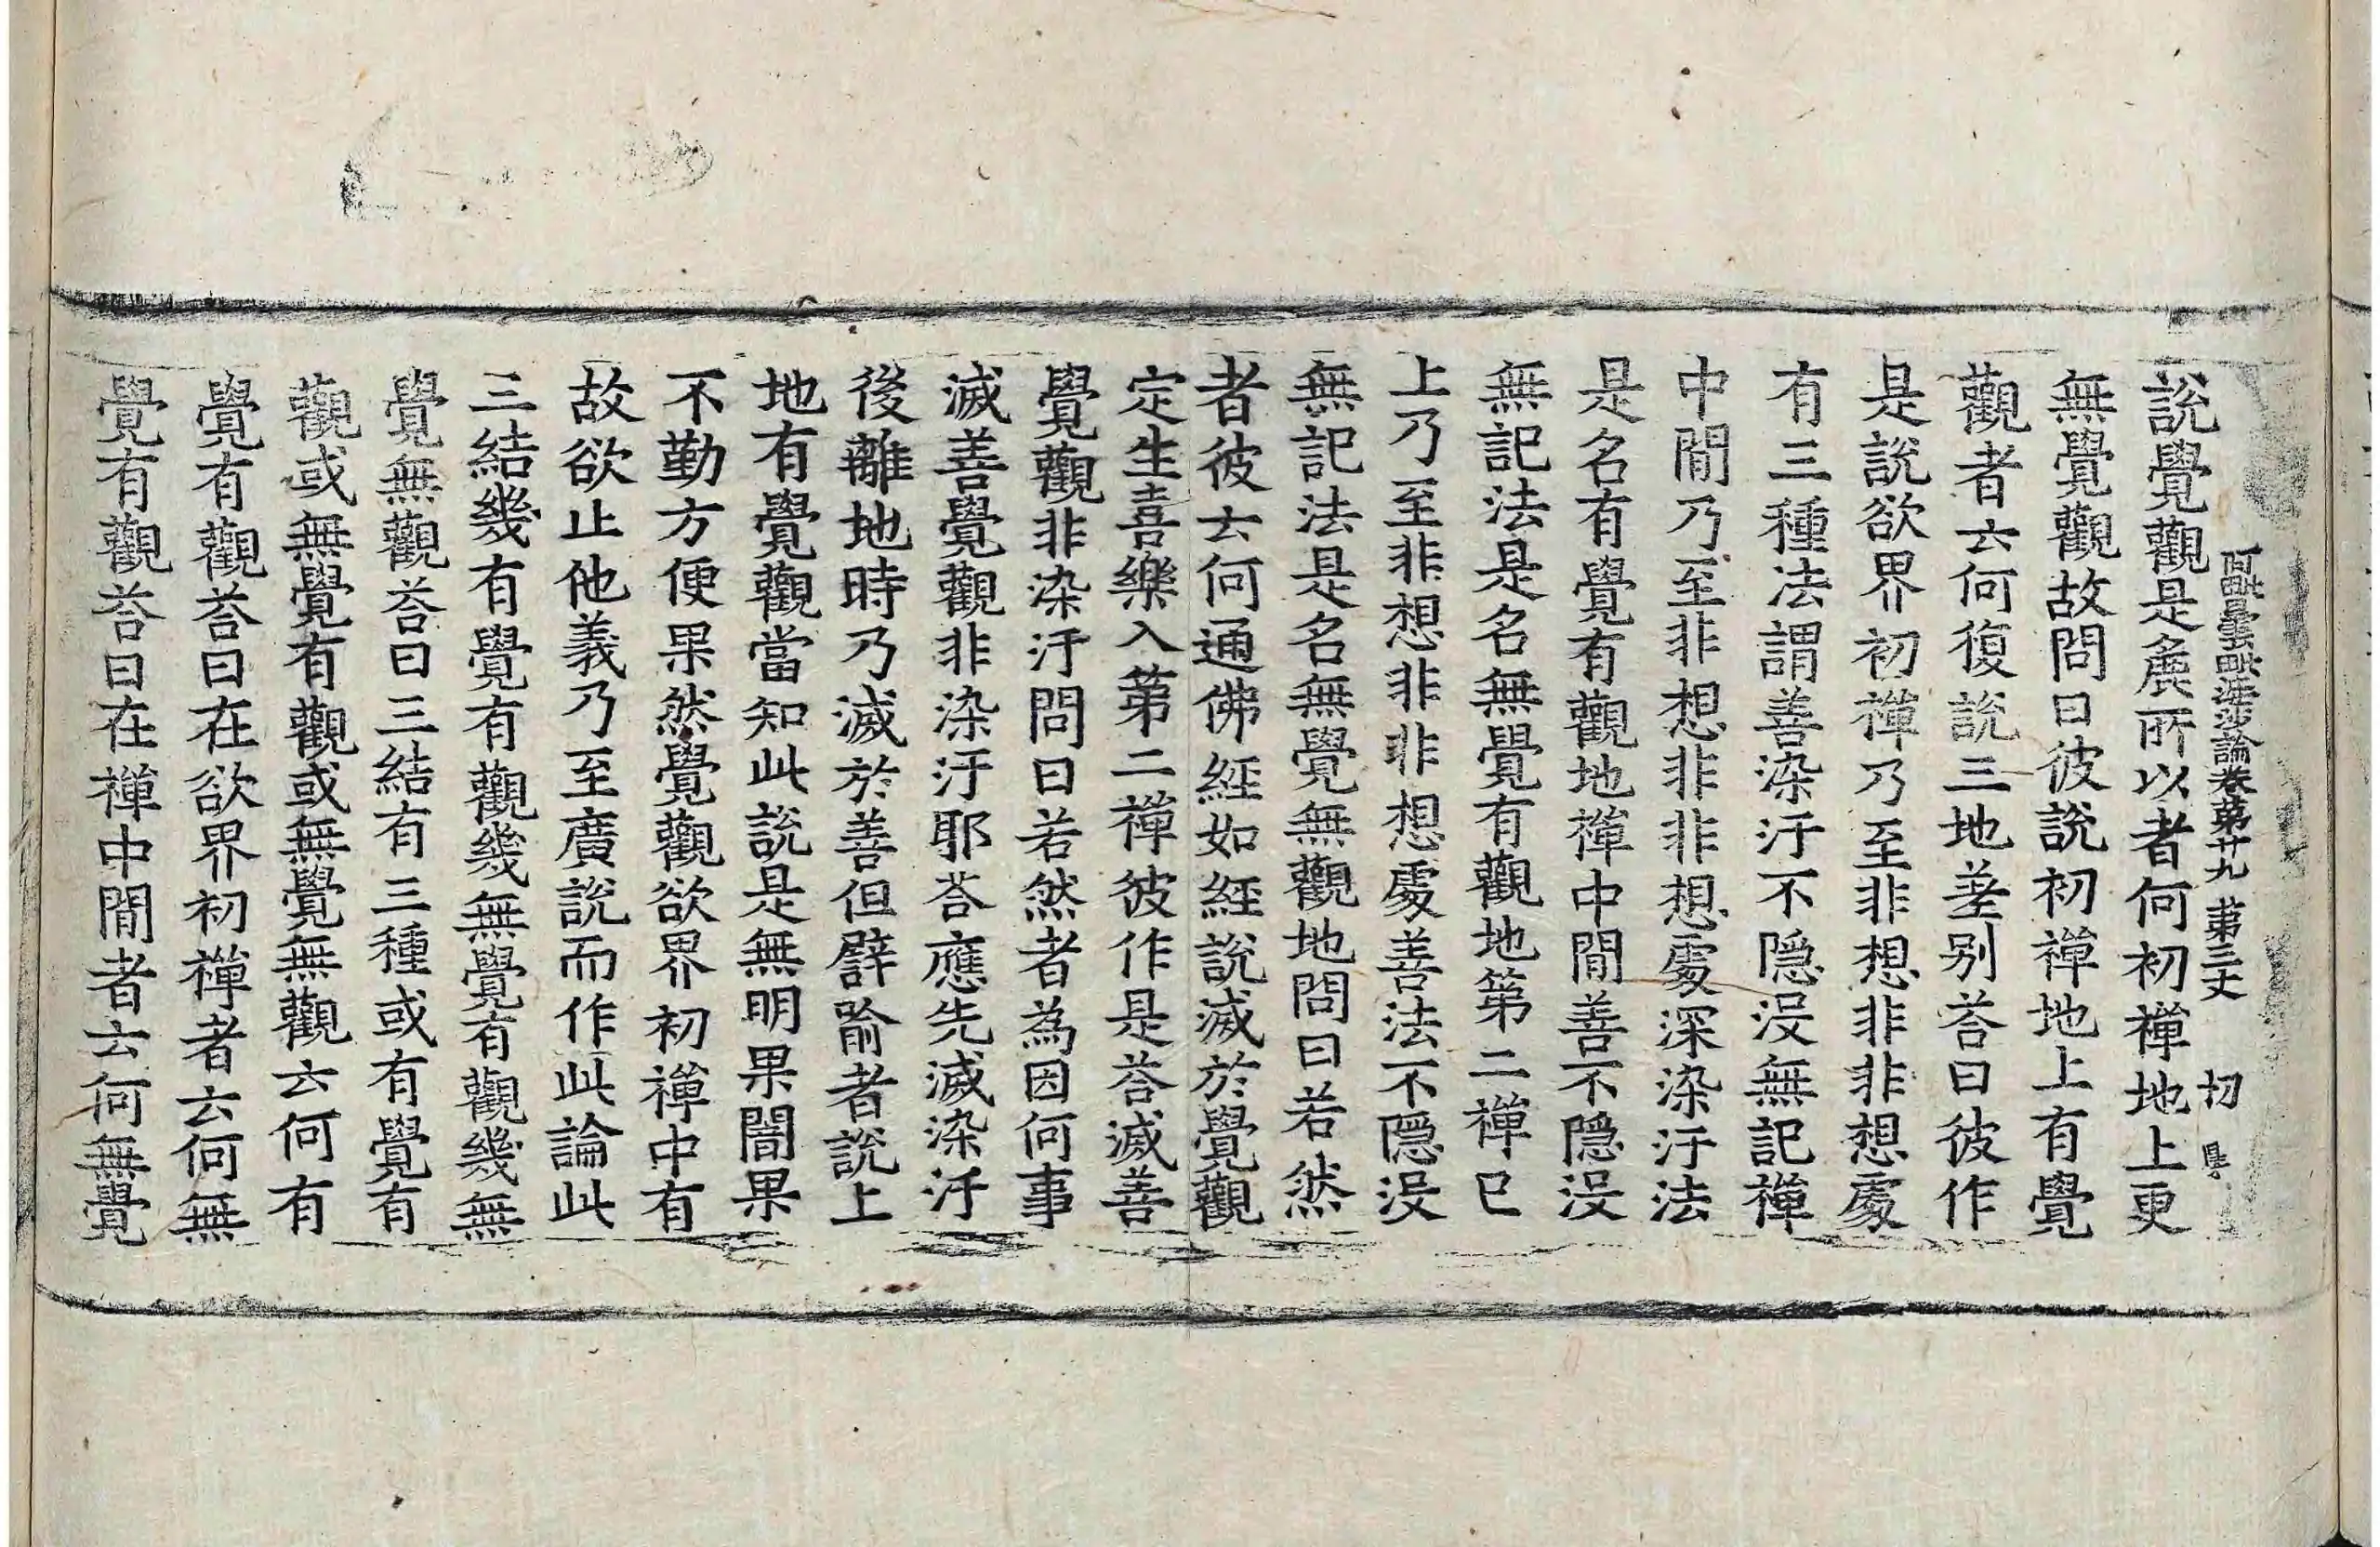 阿毗曇毗婆沙論卷第廿九 第三丈 切
說覺觀是麁所以者何初禪地上更
無覺觀故問曰彼說初禪地上有覺
觀者云何復說三地差別荅曰彼作
是說欲界初禪乃至非想非非想處
有三種法謂善染汙不隱没無記禪
中閒乃至非想非非想處深染汙法
是名有覺有觀地禪中閒善不隱没
無記法是名無覺有觀地第二禪已
上乃至非想非非想處善法不隱没
無記法是名無覺無觀地問曰若然
者彼云何通佛經如經說滅於覺觀
定生喜樂入第二禪彼作是荅滅善
覺觀非染汙問曰若然者為因何事
滅善覺觀非染汙耶荅應先滅染汙
後離地時乃滅於善但譬喻者說上
地有覺觀當知此說是無明果闇果
不勤方便果然覺觀欲界初禪中有
故欲止他義乃至廣說而作此論此
三結幾有覺有觀幾無覺有觀幾無
覺無觀荅曰三結有三種或有覺有
觀或無覺有觀或無覺無觀云何有
覺有觀荅曰在欲界初禪者云何無
覺有觀荅曰在禪中閒者云何無覺